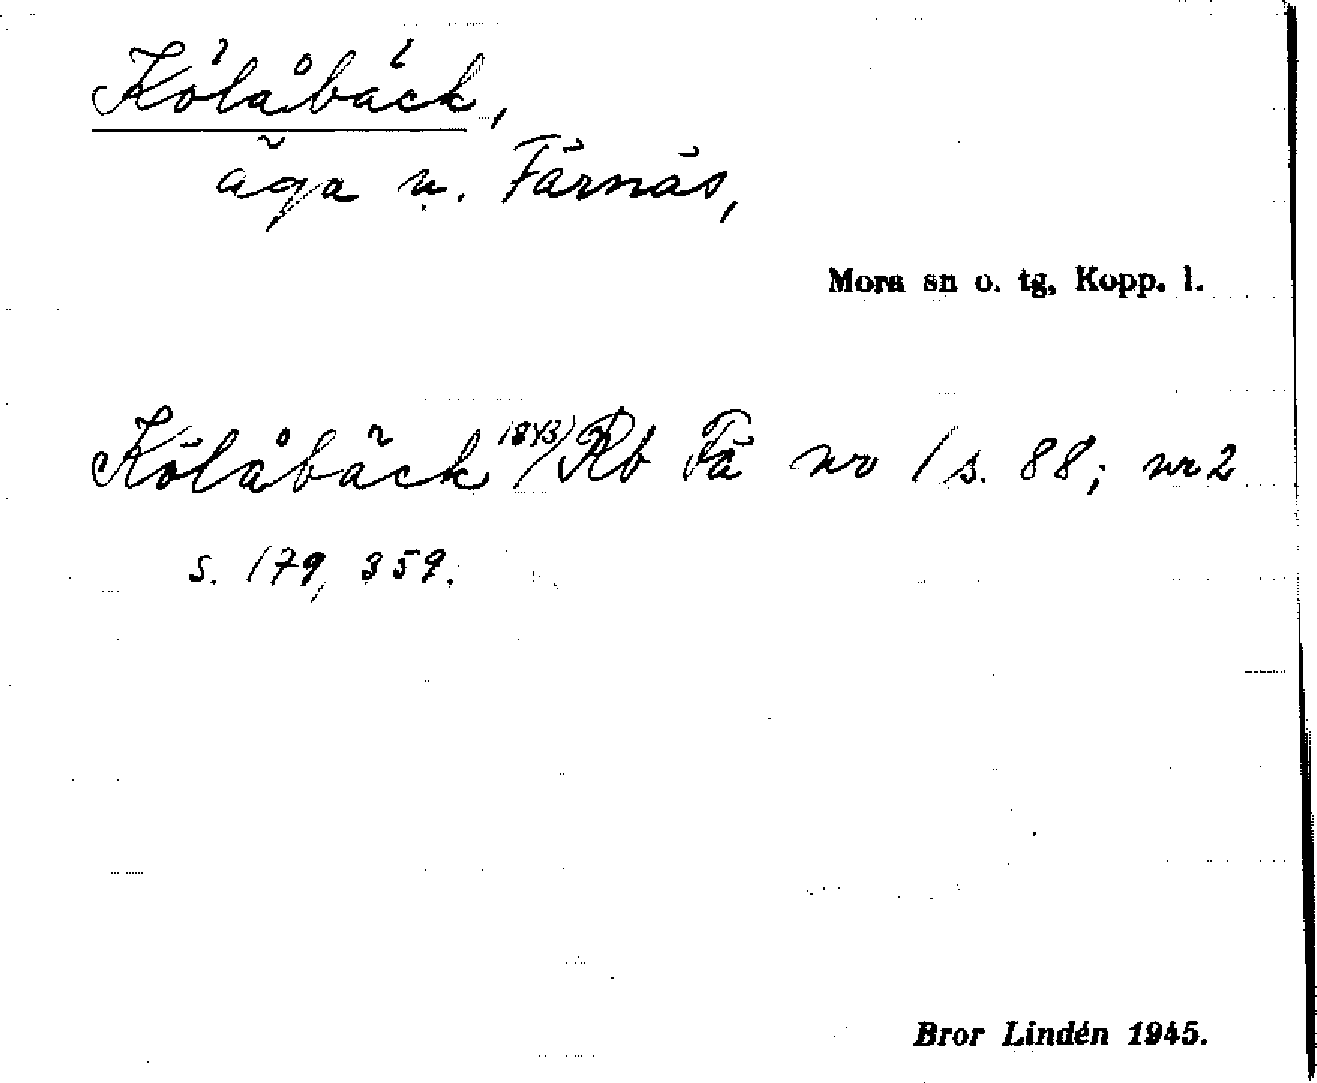 Kölåbäck,
äga n. Färnäs,
Mora sn o. tg, Kopp. l.
Kölåbäck 1843/Rb Fä nr 1 s. 88; nr 2
s. 179, 359.
Bror Lindén 1945.